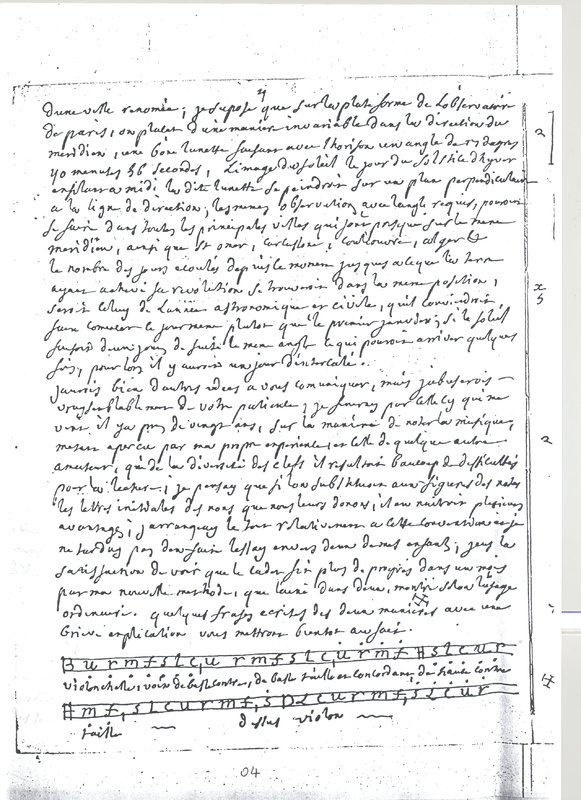 d'une ville renomée; je supose que sur la plate forme de L'observatoire
de paris, on placat d'une maniere invariable dans la direction du
meridien, une bone lunette faisant avec l'horison un angle de 17 degres
40 minutes 56 secondes, L'image du soleil le jour du solstice d'hyver
enfilant a midi la dite lunette se peindroit sur un plan perpendiculaire
a la ligne de direction; les memes observations, avec l'angle requis, pouroient
se faire dans toutes les principales villes qui sont presque sur le meme
meridien, ainsi que st omer, carcassone, alger &
le nombre des jours ecoulés depuis le moment jusques a ce que la terre
ayant achevé sa revolution se trouveroit dans la meme position,
seroit celuy de L'année astronomique et civile, qu'il conviendroit
faire comencer le jour meme plutot que le premier janvier; si le soleil
faisoit deux jours de suite le meme angle ce qui pouroit arriver quelques
fois, pour lors il y auroit un jour d'intercalé.
J'aurois bien d'autres idées a vous comuniquer, mais j'abuserois
vraysemblablement de votre patience; je finiray par celle cy qui me
vint il y a pres de vingt ans, sur la maniere de noter la musique,
m'etant aperçu par ma propre experience, et celle de quelque autre
amateur, que de la diversité des clefs il resultoit baucoup de difficultés
pour la lecture; je pensay que si l'on substituoit aux figures des notes
les lettres initiales des noms que nous leurs donons, il en naitroit plusieurs
avantages; j'arrangeay le tout relativement a cette convention et je
ne tarday pas d'en faire l'essay envers deux de mes enfants; j'eus la
satisfaction de voir que le cadet fit plus de progrés dans un mois
par ma nouvelle methode, que l'ainé dans deux, montré selon l'usage
ordinaire. quelques frases ecrites des deux manieres avec une
brieve explication vous mettront bientot au fait.
B u r m f s l c, u r m f s l c, u r m f s l c u r
violoncelle, voix de basse contre, de basse taille et concordant, de haute contre
m f, s l c u r m f, s l c u r m f, s l c u r
taille — dessus violon —
04